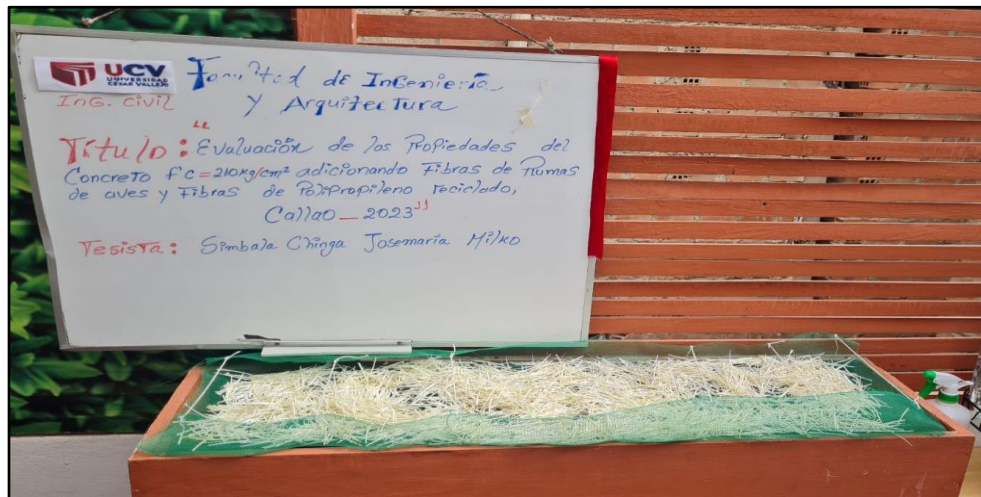 UCV
UNIVERSIDAD
CÉSAR VALLEJO
de Ingeniería
Ing. Civil
y Arquitectura
Título: "Evaluación de las Propiedades del
Concreto f'c=210kg/cm² adicionando Fibras de Plumas
de aves y Fibras de Polipropileno reciclado,
Callao - 2023"
Tesista: Simbala Chinga Josemaria Milko